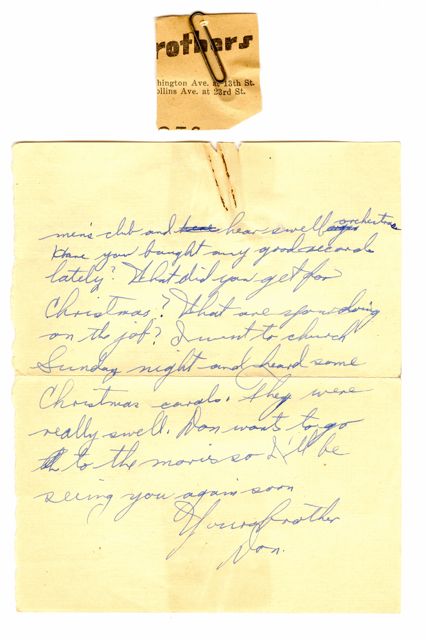 rothers
hington Ave. at 13th St.
ollins Ave. at 23rd St.
men's club and hear swell orchestras
Have you bought any good records
lately? What did you get for
Christmas? What are you doing
on the job? I went to church
Sunday night and heard some
Christmas carols. They were
really swell. Don wants to go
to the movie so I'll be
seeing you again soon
Your brother
Don.